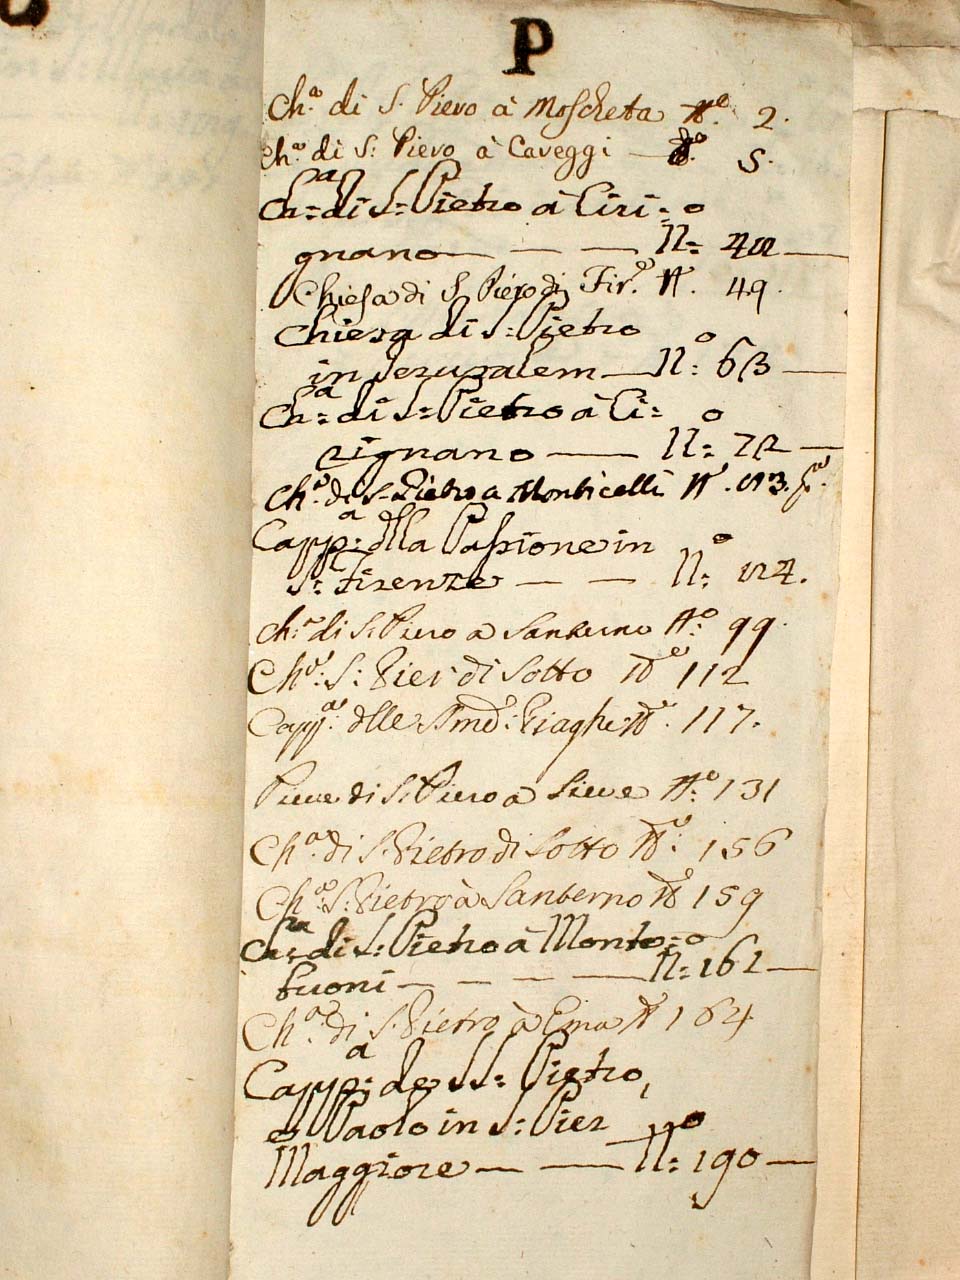 P
Ch.ª di S. Piero à Moscheta N.º 2.
Ch.ª di S: Piero à Caveggi — N.º 5.
Ch:ª di S: Pietro à Ciri:
gnano — — — N:º 42 —
Chiesa di S. Piero di Fir.e N.º 49.
Chiesa di S: Pietro
in Jerusalem — N:º 63 —
Ch:ª di S: Pietro à Ci:
rignano — N:º 72 —
Ch.ª di S. Pietro a Monticelli N.º
Capp:ª dlla Passione in
S: Firenze — — N:º
Ch:ª di S: Piero a Santerno N:º 99.
Ch.ª S: Pier di Sotto N.º 112
Capp.ª dlle SSme: Piaghe N.º 117.
Pieve di S: Piero a Sieve N:º 131
Ch.ª di S. Pietro di Sotto N.º 156
Ch.ª S. Pietro à Santerno N.º 159
Ch:ª di S: Pietro à Monte:
buoni — — — N:º 162 —
Ch.ª di S. Pietro à Ema N.º 164
Capp:ª de SS: Pietro,
e Paolo in S: Pier
Maggiore — — N:º 190 —